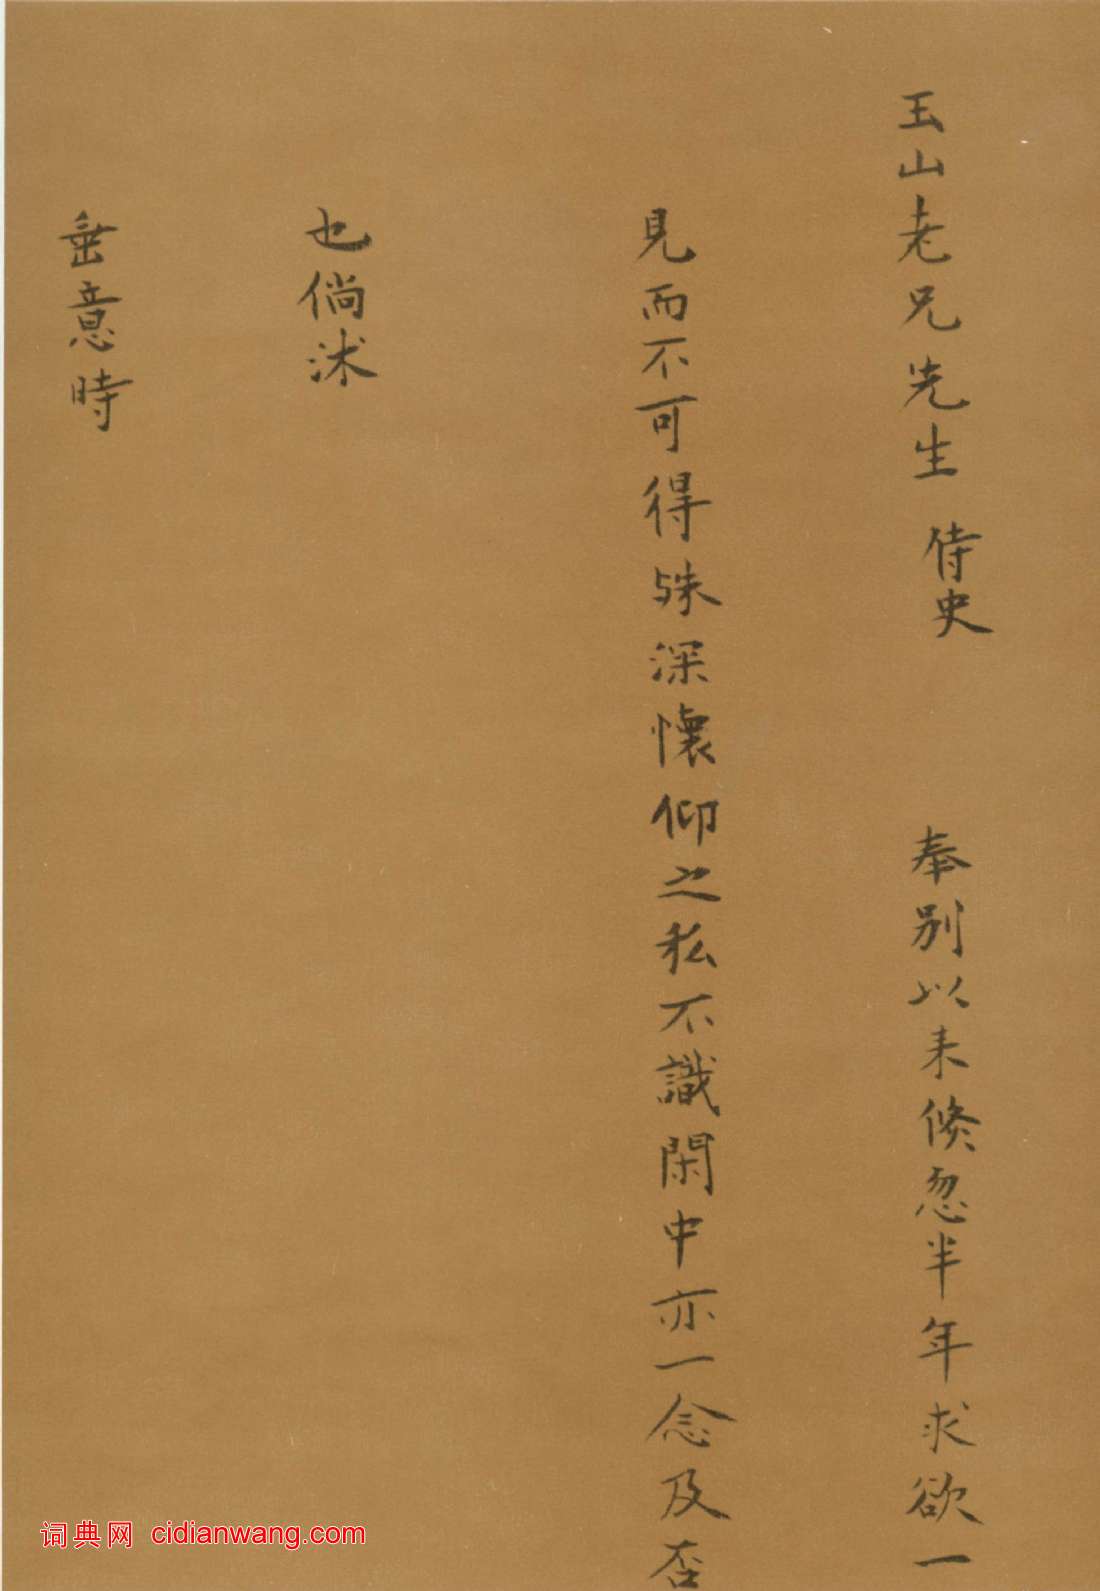 玉山老兄先生 侍史 奉别以来倏忽半年求欲一
見而不可得殊深懷仰之私不識閑中亦一念及否
也倘沐
垂意時
词典网 cidianwang.com